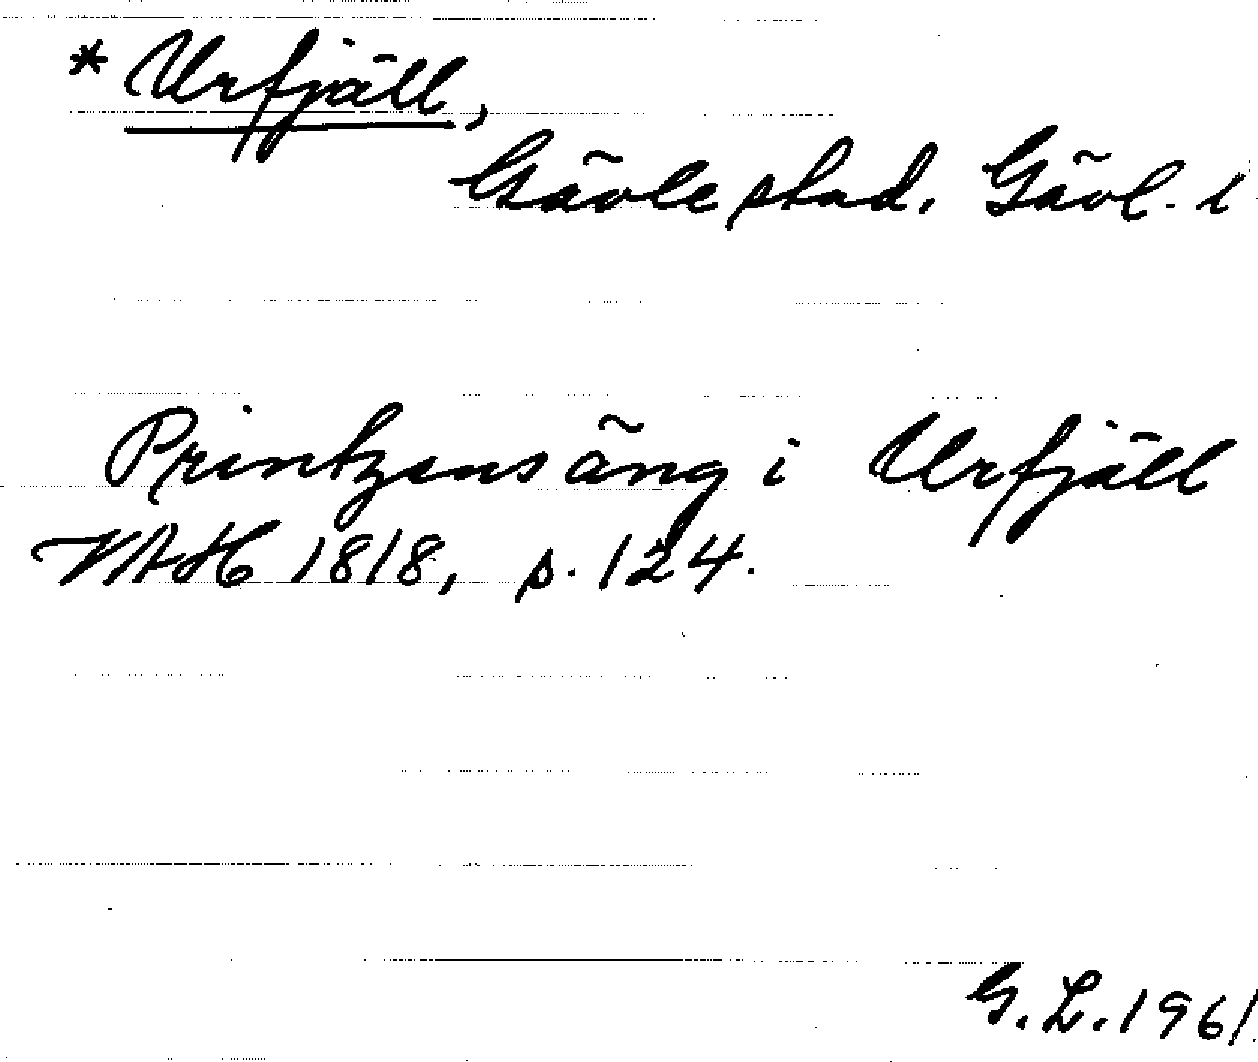 * Urfjäll,
Gävle stad. Gävl. l
Printzens äng i Urfjäll
VAH 1818, p. 124.
G. L. 1961.